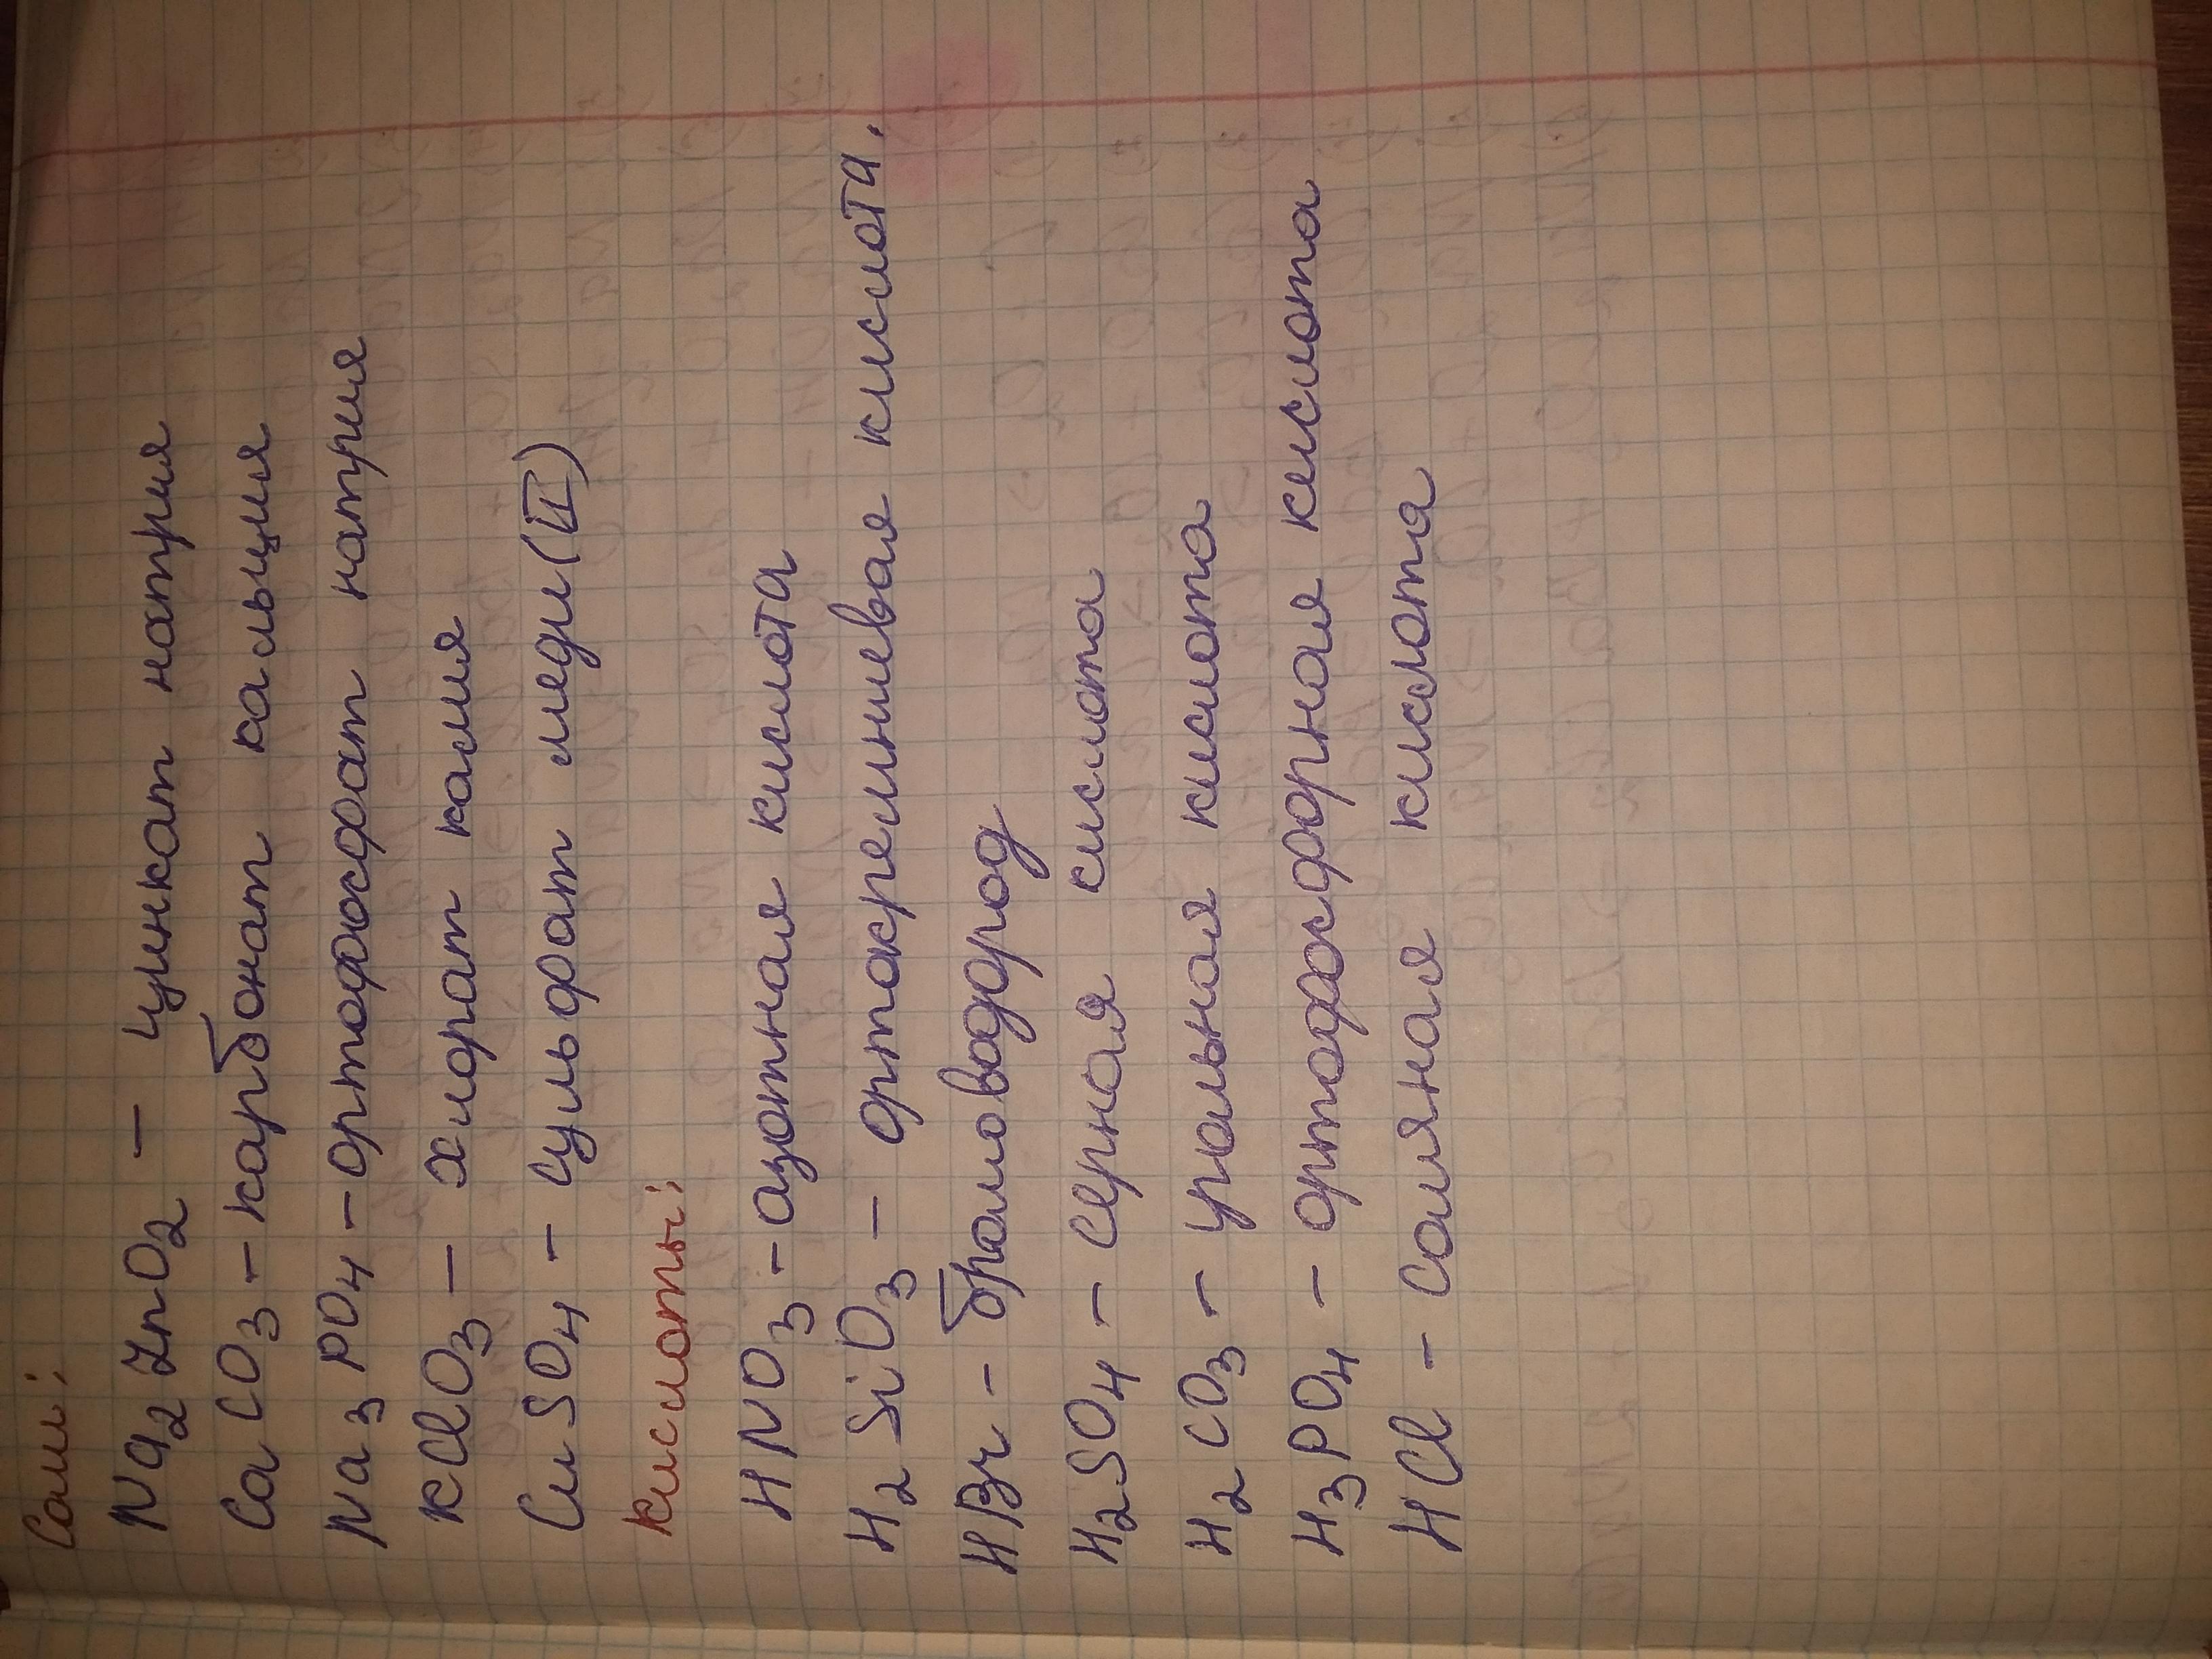 Соли:
Na2ZnO2 – цинкат натрия
CaCO3 – карбонат кальция
Na3PO4 – ортофосфат натрия
KClO3 – хлорат калия
CuSO4 – сульфат меди (II)
Кислоты:
HNO3 – азотная кислота
H2SiO3 – ортокремниевая кислота.
HBr – бромоводород
H2SO4 – серная кислота
H2CO3 – угольная кислота
H3PO4 – ортофосфорная кислота
HCl – соляная кислота